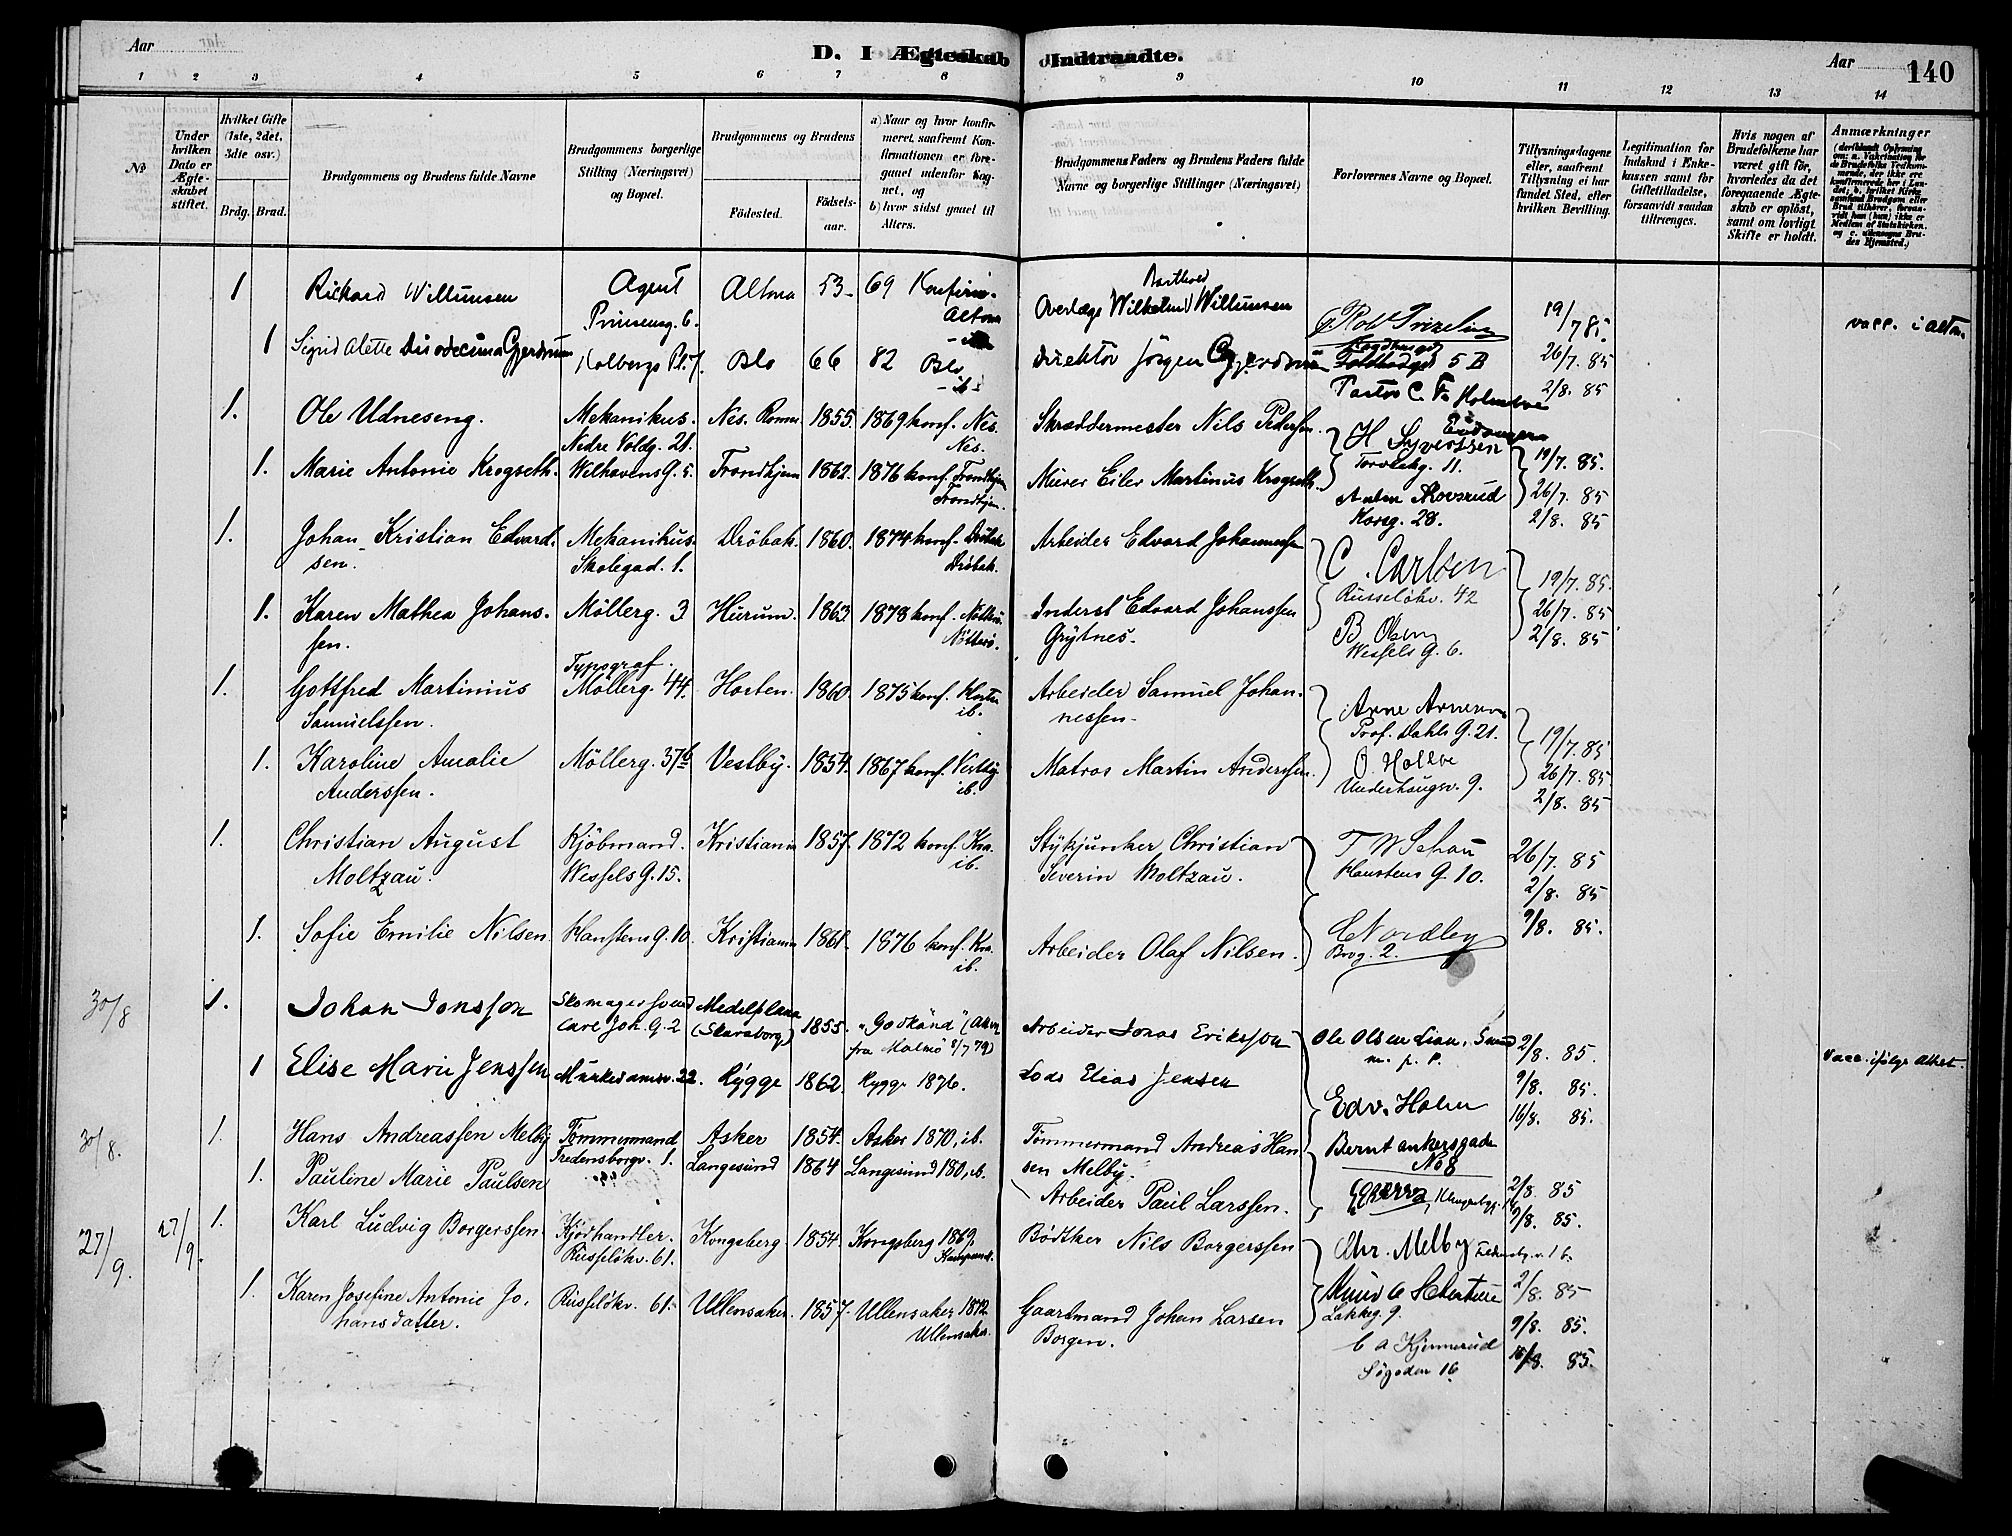 Aar
D. I Ægteskab Indtraadte.
Aar
140
1 2 3 4 5 6 7 8 9 10 11 12 13 14
No
Under hvilken Dato er Ægteskabet stiftet.
Hvilket Gifte (1ste, 2det, 3die osv.)
Brdg. Brud.
Brudgommens og Brudens fulde Navne
Brudgommens borgerlige Stilling (Næringsvei) og Bopæl.
Brudgommens og Brudens
Fødested.
Fødselsaar.
a) Naar og hvor konfirmeret, saafremt Konfirmationen er foregaaet udenfor Sognet, og
b) hvor sidst gaaet til Alters.
Brudgommens Faders og Brudens Faders fulde Navne og borgerlige Stillinger (Næringsvei)
Forlovernes Navne og Bopæl.
Tillysningsdagene eller, saafremt Tillysning ei har fundet Sted, efter hvilken Bevilling.
Legitimation for Indskud i Enkekassen samt for Giftetilladelse, forsaavidt saadan tiltrænges.
Hvis nogen af Brudefolkene har været gift før, hvorledes da det foregaaende Ægteskab er opløst, samt om lovligt Skifte er holdt.
Anmærkninger
1 Rickard Willumsen Agent Prinsensg. 6. Altona 53 69 Konfirm. Altona
Overlæge Wilhelm Willumsen 19/7 85. vacc. i Altona
1 Sigrid Alette Duodecima Gjerdrum Holbergs Pl. 7. Oslo 66 82 Oslo ib.
Direktør Jørgen Gjerdrum 5 B 26/7. 85
Pastor C. F. 2/8. 85
1. Ole Udneseng. Mekanikus. Nedre Voldg. 21. Nes. Romer. 1855. 1869 konf. Nes. Nes.
Skræddermester Nils Pedersen. H Syvertsen Torvtakg. 11. 19/7. 85.
1. Marie Antonie Krogseth. Welhavens G. 5. Trondhjem 1862. 1876 konf. Trondhjem Trondhjem.
Murer Eiler Martinus Krogseth. Korsg. 28. 26/7. 85
2/8. 85
1. Johan Kristian Edvardsen. Mekanikus. Skolegad. 1. Dröbak. 1860. 1874 konf. Dröbak Dröbak.
Arbeider Edvard Johannessen C. Carlsen Russeløkv. 42 19/7. 85.
1. Karen Mathea Johanssen. Möllerg. 3 Hurum. 1863 1878 konf. Nötterö. Nötterö.
Inderst Edvard Johanssen Grytnes. B Olsen Wessels G. 6. 26/7. 85
2/8. 85
1. Gottfred Martinius Samuelssen. Typograf. Möllerg. 44. Horten. 1860 1875 konf. Horten ib.
Arbeider Samuel Johannessen. Arne Arnesen Prof. Dahls G. 21. 19/7. 85
1. Karoline Amalie Anderssen. Möllerg. 37b Vestby. 1854. 1867 konf. Vestby ib.
Matros Martin Anderssen. Underhaugsv. 9. 26/7. 85
2/8. 85
1. Christian August Moltzau. Kjöbmand. Wessels G. 15. Kristiania 1857. 1872 konf. Kra. ib.
Stykjunker Christian Severin Moltzau. T W Schou Hanstens G. 10. 26/7. 85
2/8. 85
1. Sofie Emilie Nilsen Hanstens G. 10. Kristiania 1861. 1876 konf. Kra. ib.
Arbeider Olaf Nilsen. C Nordby Brog. 2. 9/8. 85.
30/8 1. Johan Jonsson Skomagersvend Carl Joh. G. 2 Medelplana (Skaraborg) 1855. "Godkänd" (Attest fra Malmö 9/7 79)
Arbeider Jonas Eriksson Ole Olsen Lien. m. p. P. 2/8. 85.
1 Elise Marie Jenssen Munkedamsv. 22. Rygge 1862. Rygge 1876.
Lods Elias Jensen Edv. Holm Bernt Ankersgade No 8 9/8. 85. Vacc. ifölge Attest.
16/8. 85.
30/8. 1. Hans Andreassen Melby Tömmermand Fredensborgv. 1. Asker 1854. Asker 1870, ib.
Tömmermand Andreas Hansen Melby. 2/8. 85
1. Pauline Marie Paulsen Langesund 1864 Langesund 180, ib.
Arbeider Paul Larssen. Chr. Melby 9/8. 85.
27/9. 27/9. 1. Karl Ludvig Borgerssen. Kjödhandler. Russelökv. 61. Kongsberg 1854. Kongsberg 1869.
Bödtker Nils Borgerssen Lakkeg. 9. 2/8. 85
1. Karen Josefine Antonie Johansdatter. Russelökv. 61. Ullensaker. 1857. Ullensaker 1872. Ullensaker.
Gaardmand Johan Larsen Borgen. C A Kjennerud Sögaden 16 9/8. 85.
16/8. 85.